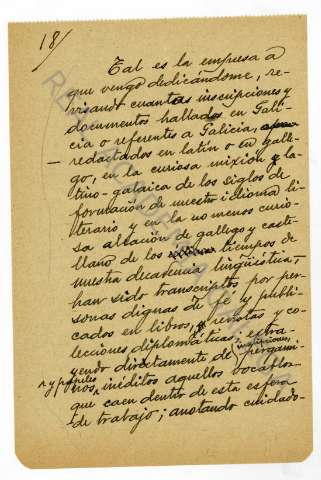 18/
Tal es la empresa a
que vengo dedicándome, re-
visando cuantas inscripciones y
documentos hallados en Gali-
cia o referentes a Galicia,
redactados en latín o en galle-
go, en la curiosa mixión la-
tino-galaica de los siglos de
formación de nuestro idioma li-
terario y en la no menos curio-
sa aleación de gallego y caste-
llano de los tiempos de
nuestra decadencia lingüística,
han sido transcriptos por per-
sonas dignas de fe y publi-
cados en libros, revistas y co-
lecciones diplomáticas; extra-
yendo directamente de inscripciones, pergami-
nos y papeles inéditos aquellos vocablos
que caen dentro de esta esfera
de trabajo; anotando cuidado-